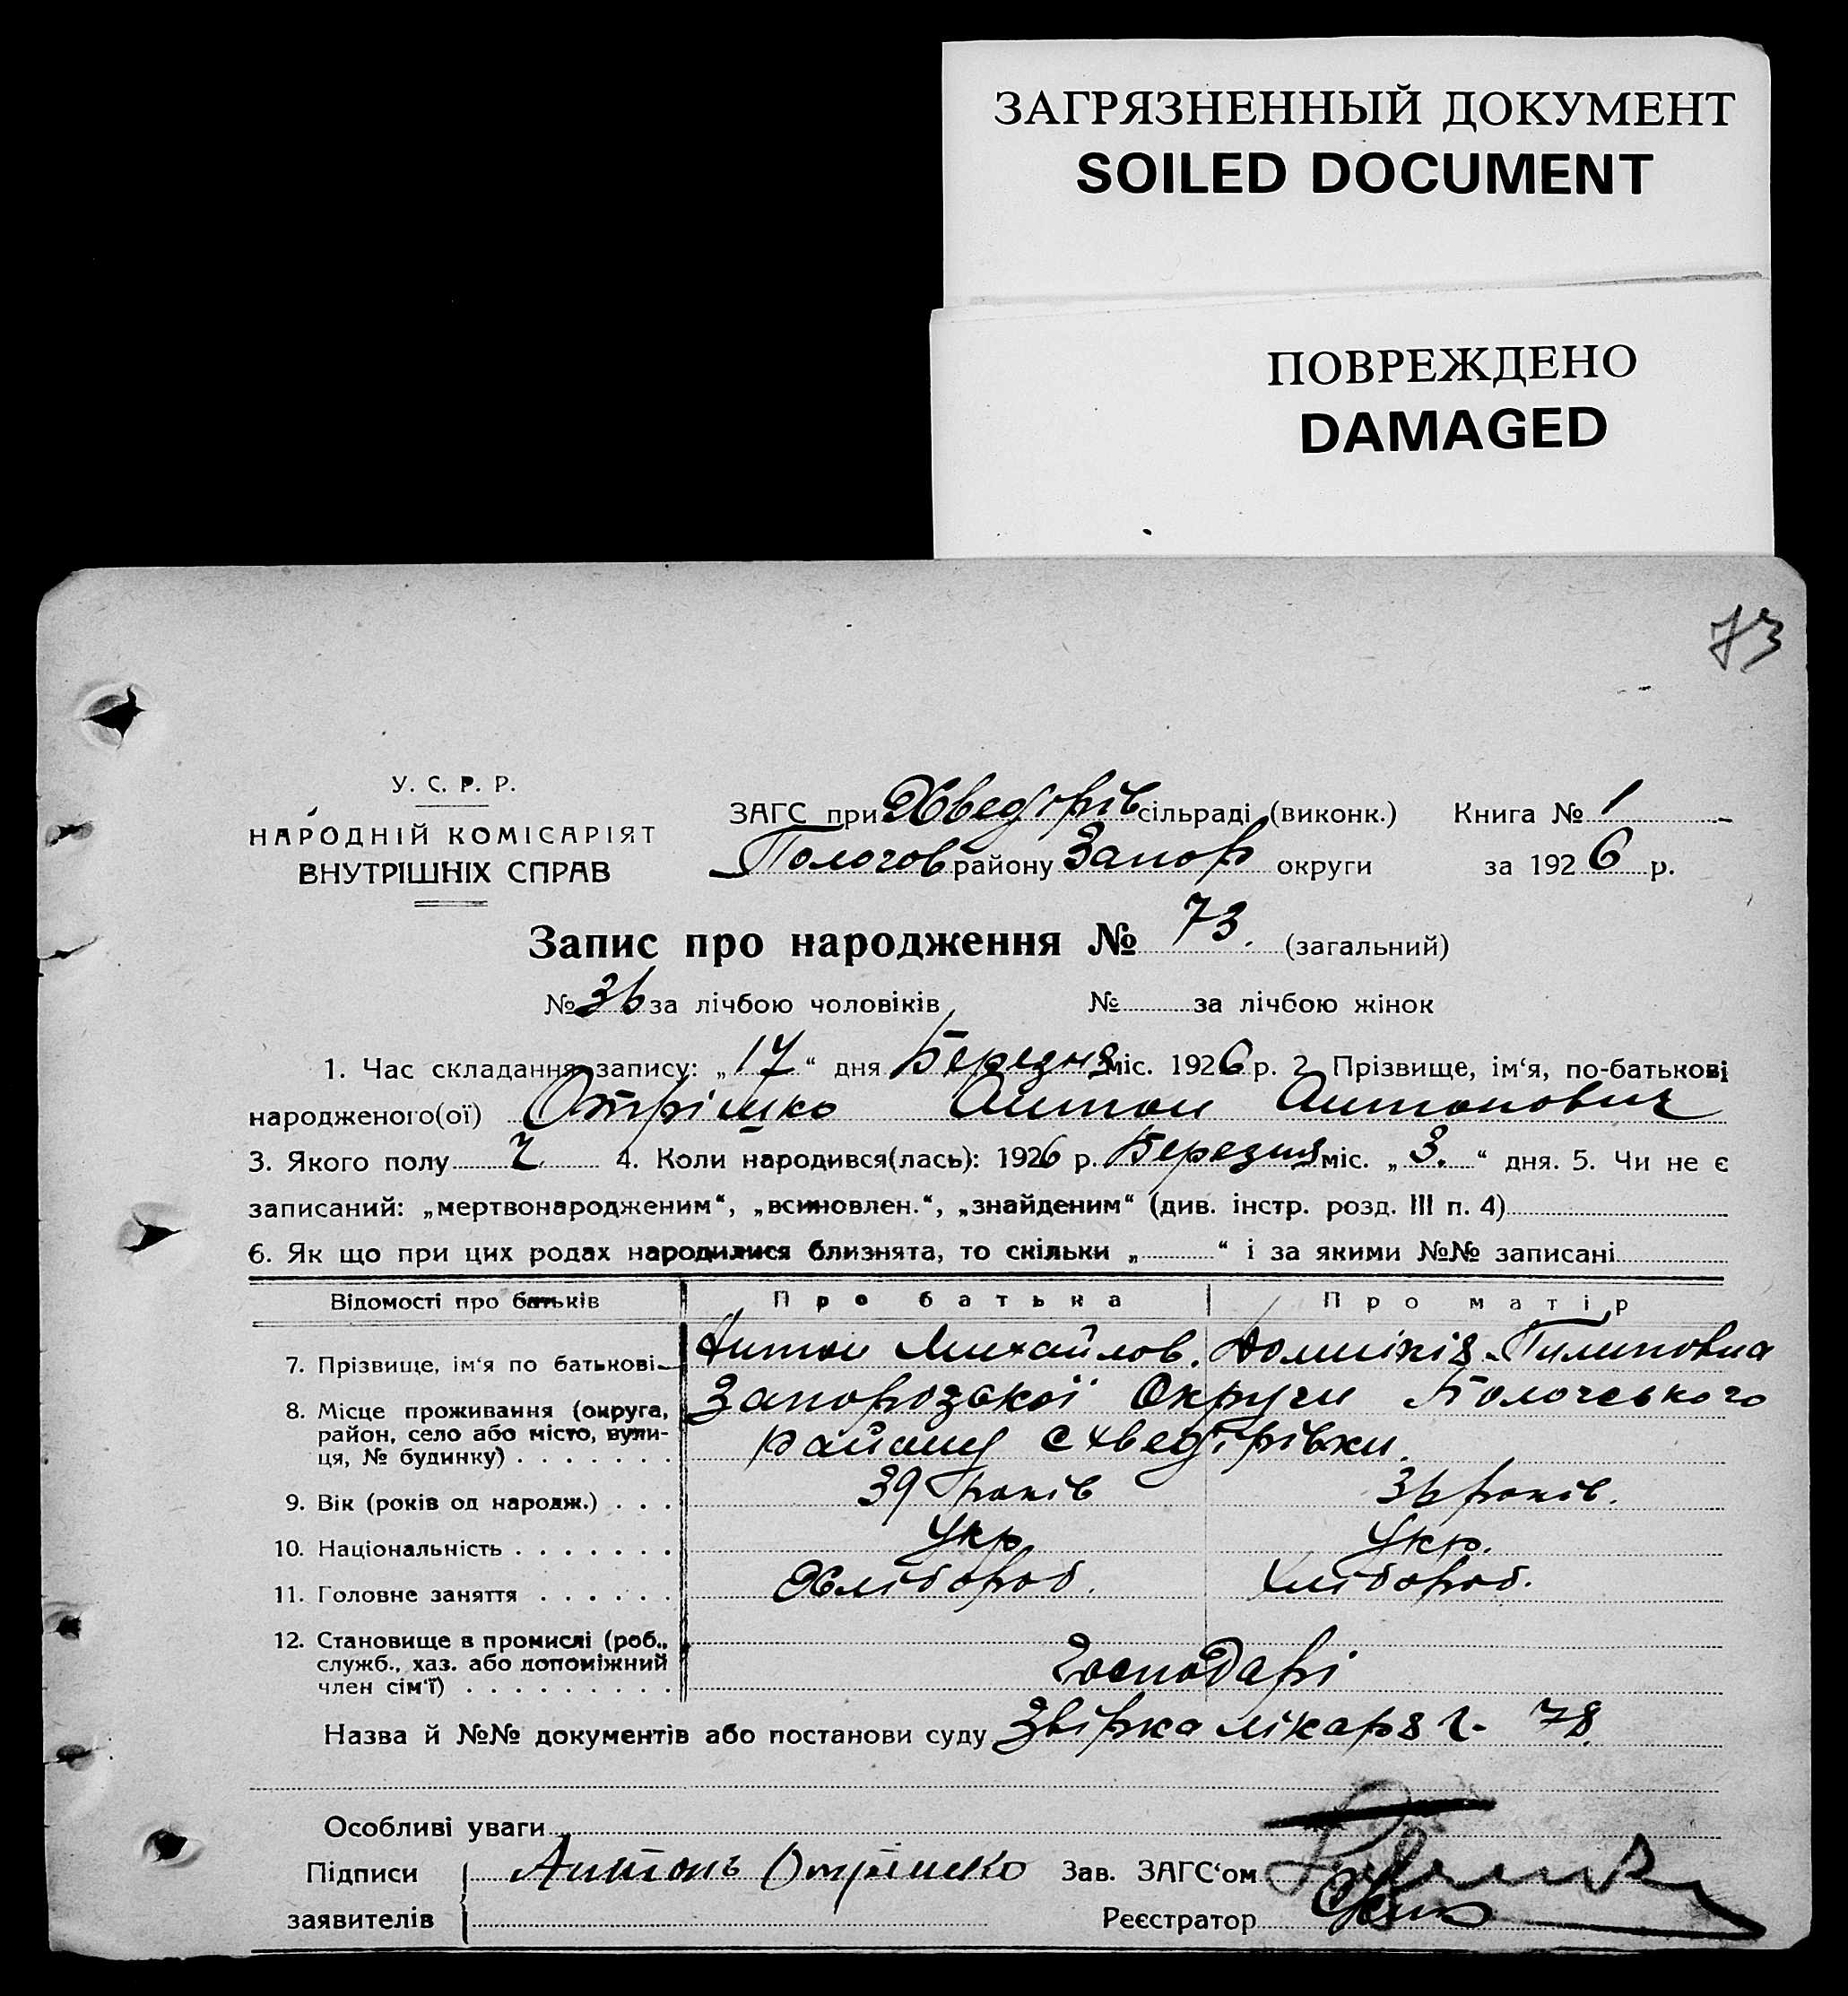 ЗАГРЯЗНЕННЫЙ ДОКУМЕНТ
SOILED DOCUMENT
ПОВРЕЖДЕНО
DAMAGED
73
У. С. Р. Р.
НАРОДНІЙ КОМІСАРІЯТ
ВНУТРІШНІХ СПРАВ
ЗАГС при Хведорів сільраді (виконк.) Книга № 1
Пологов району Запор округи за 1926 р.
Запис про народження № 73. (загальний)
№ 36 за лічбою чоловіків № за лічбою жінок
1. Час складання запису: „17“ дня Березня міс. 1926 р. 2. Прізвище, ім‘я, по-батькові
народженого(ої) Отрішко Антон Антонович
3. Якого полу ч. 4. Коли народився(лась): 1926 р. Березня міс. „3.“ дня. 5. Чи не є
записаний: „мертвонародженим“, „всиновлен.“, „знайденим“ (див. інстр. розд. III п. 4)
6. Як що при цих родах народилися близнята, то скільки „ “ і за якими №№ записані
Відомості про батьків Про батька Про матір
7. Прізвище, ім‘я по батькові Антон Михайлов. Домникія Пилиповна
8. Місце проживання (округа, район, село або місто, вулиця, № будинку) Запорозської Округи Пологського
району с Хведірівки.
9. Вік (років од народж.) 39 років 36 років.
10. Національність Укр Укр.
11. Головне заняття Хлібороб. Хлібороб.
12. Становище в промислі (роб., служб., хаз. або допоміжний член сім‘ї) Господарі
Назва й №№ документів або постанови суду Звірка лікаря ч. 78.
Особливі уваги
Підписи Антонъ Отрішко Зав. ЗАГС‘ом
заявителів Реєстратор